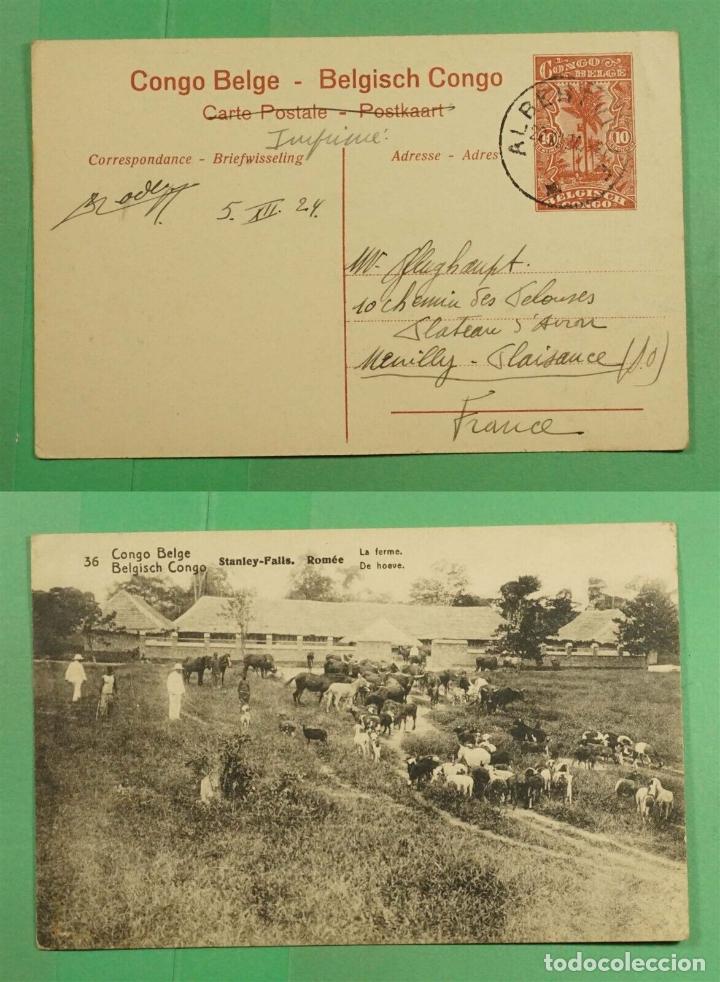 Congo Belge - Belgisch Congo
Carte Postale - Postkaart
Imprimé
Correspondance - Briefwisseling
Adresse - Adres
CONGO BELGE
10 10
BELGISCH CONGO
5. XII. 24.
Mr. Flughaupt.
10 chemin des Pelouses
Plateau d'Avron
Neuilly - Plaisance (S.O)
France
36 Congo Belge
Belgisch Congo
Stanley-Falls. Romée
La ferme.
De hoeve.
todocoleccion